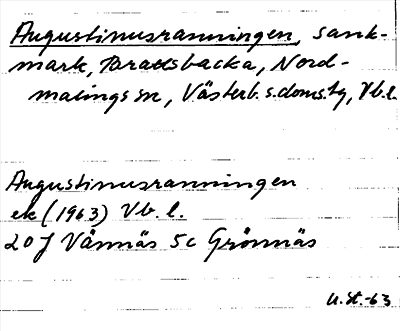 Augustinusranningen, sank-
mark, Brattsbacka, Nord-
malings sn, Västerb. s. doms. tg, Vb. l.
Augustinusranningen
ek (1963) Vb. l.
20 J Vännäs 5c Grönnäs
U. St. -63